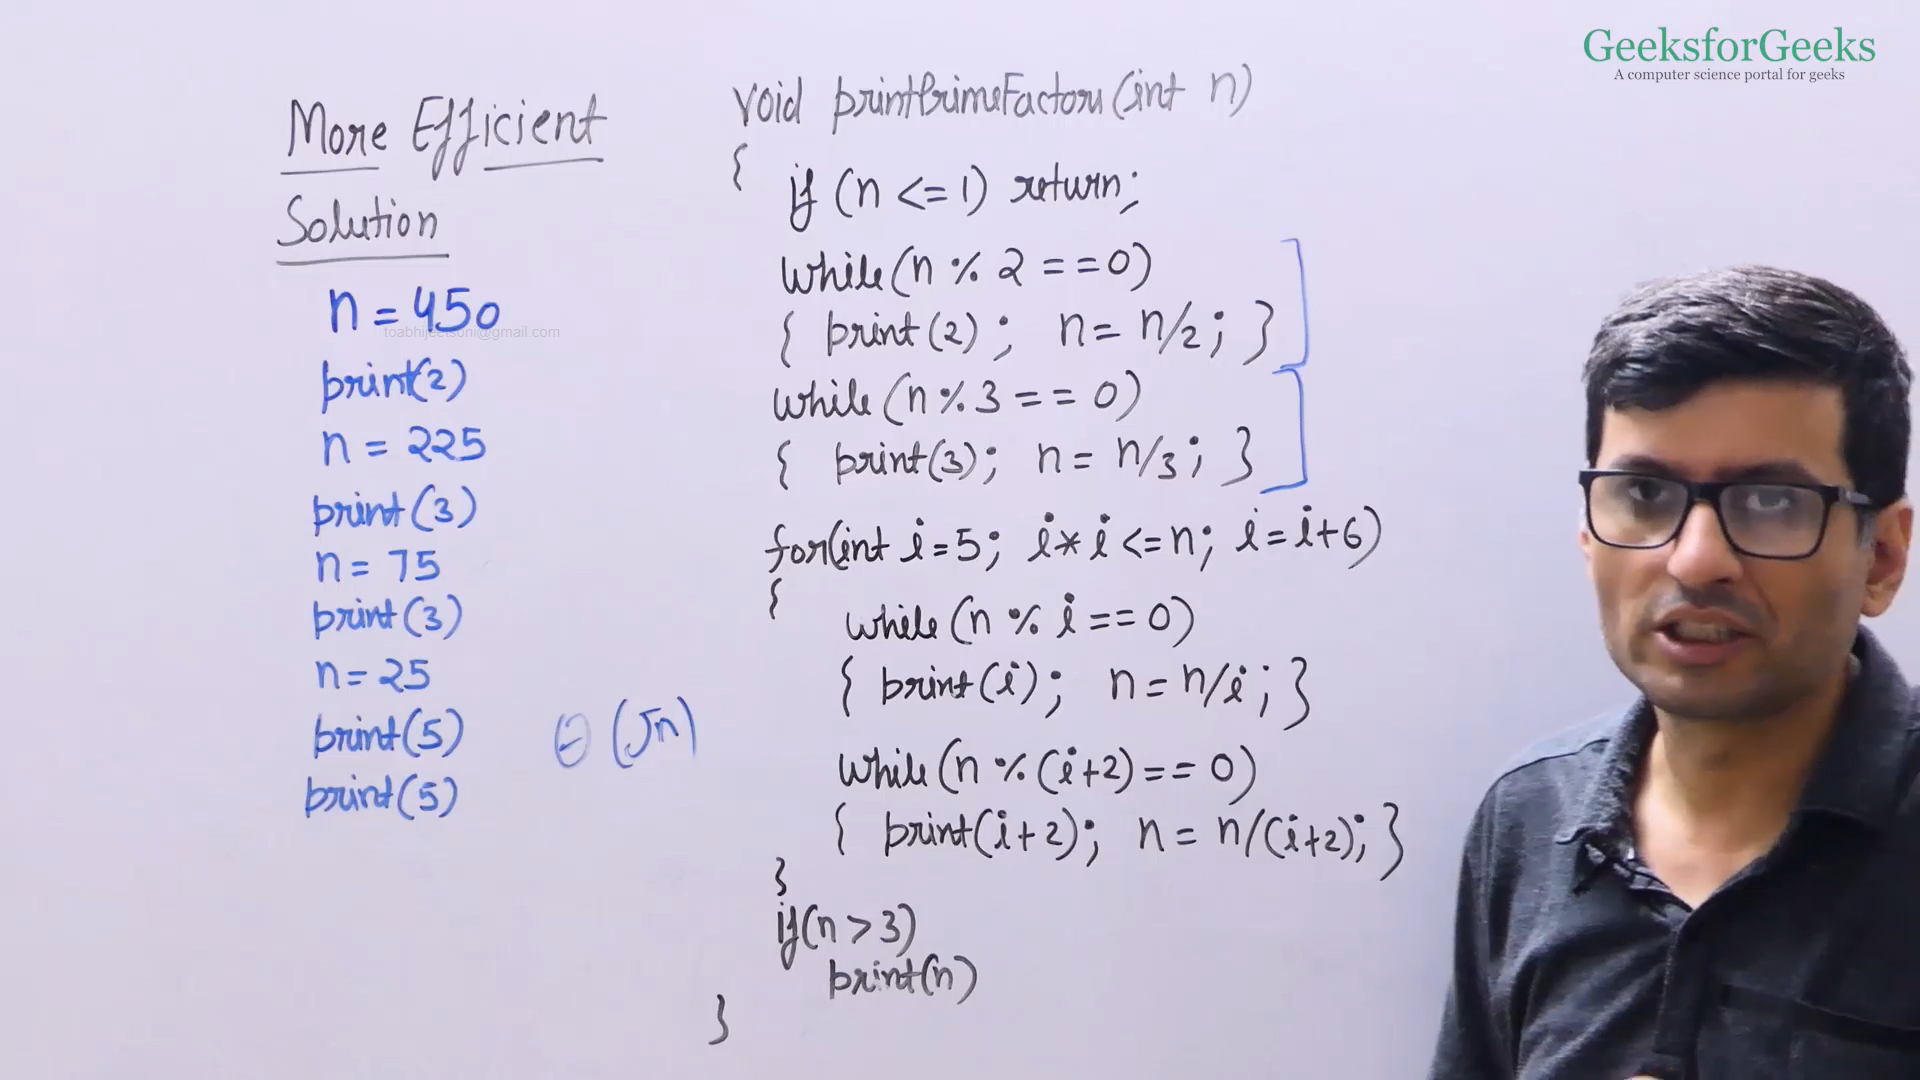 GeeksforGeeks
A computer science portal for geeks
More Efficient
Solution
n = 450
toabhijeetsoni@gmail.com
print(2)
n = 225
print(3)
n = 75
print(3)
n = 25
print(5)
print(5)
Θ(√n)
void printPrimeFactors(int n)
{
if (n <= 1) return;
while(n % 2 == 0)
{ print(2); n = n/2; }
while(n % 3 == 0)
{ print(3); n = n/3; }
for(int i=5; i*i <=n; i=i+6)
{
while(n % i == 0)
{ print(i); n = n/i; }
while(n %(i+2) == 0)
{ print(i+2); n = n/(i+2); }
}
if(n > 3)
print(n)
}